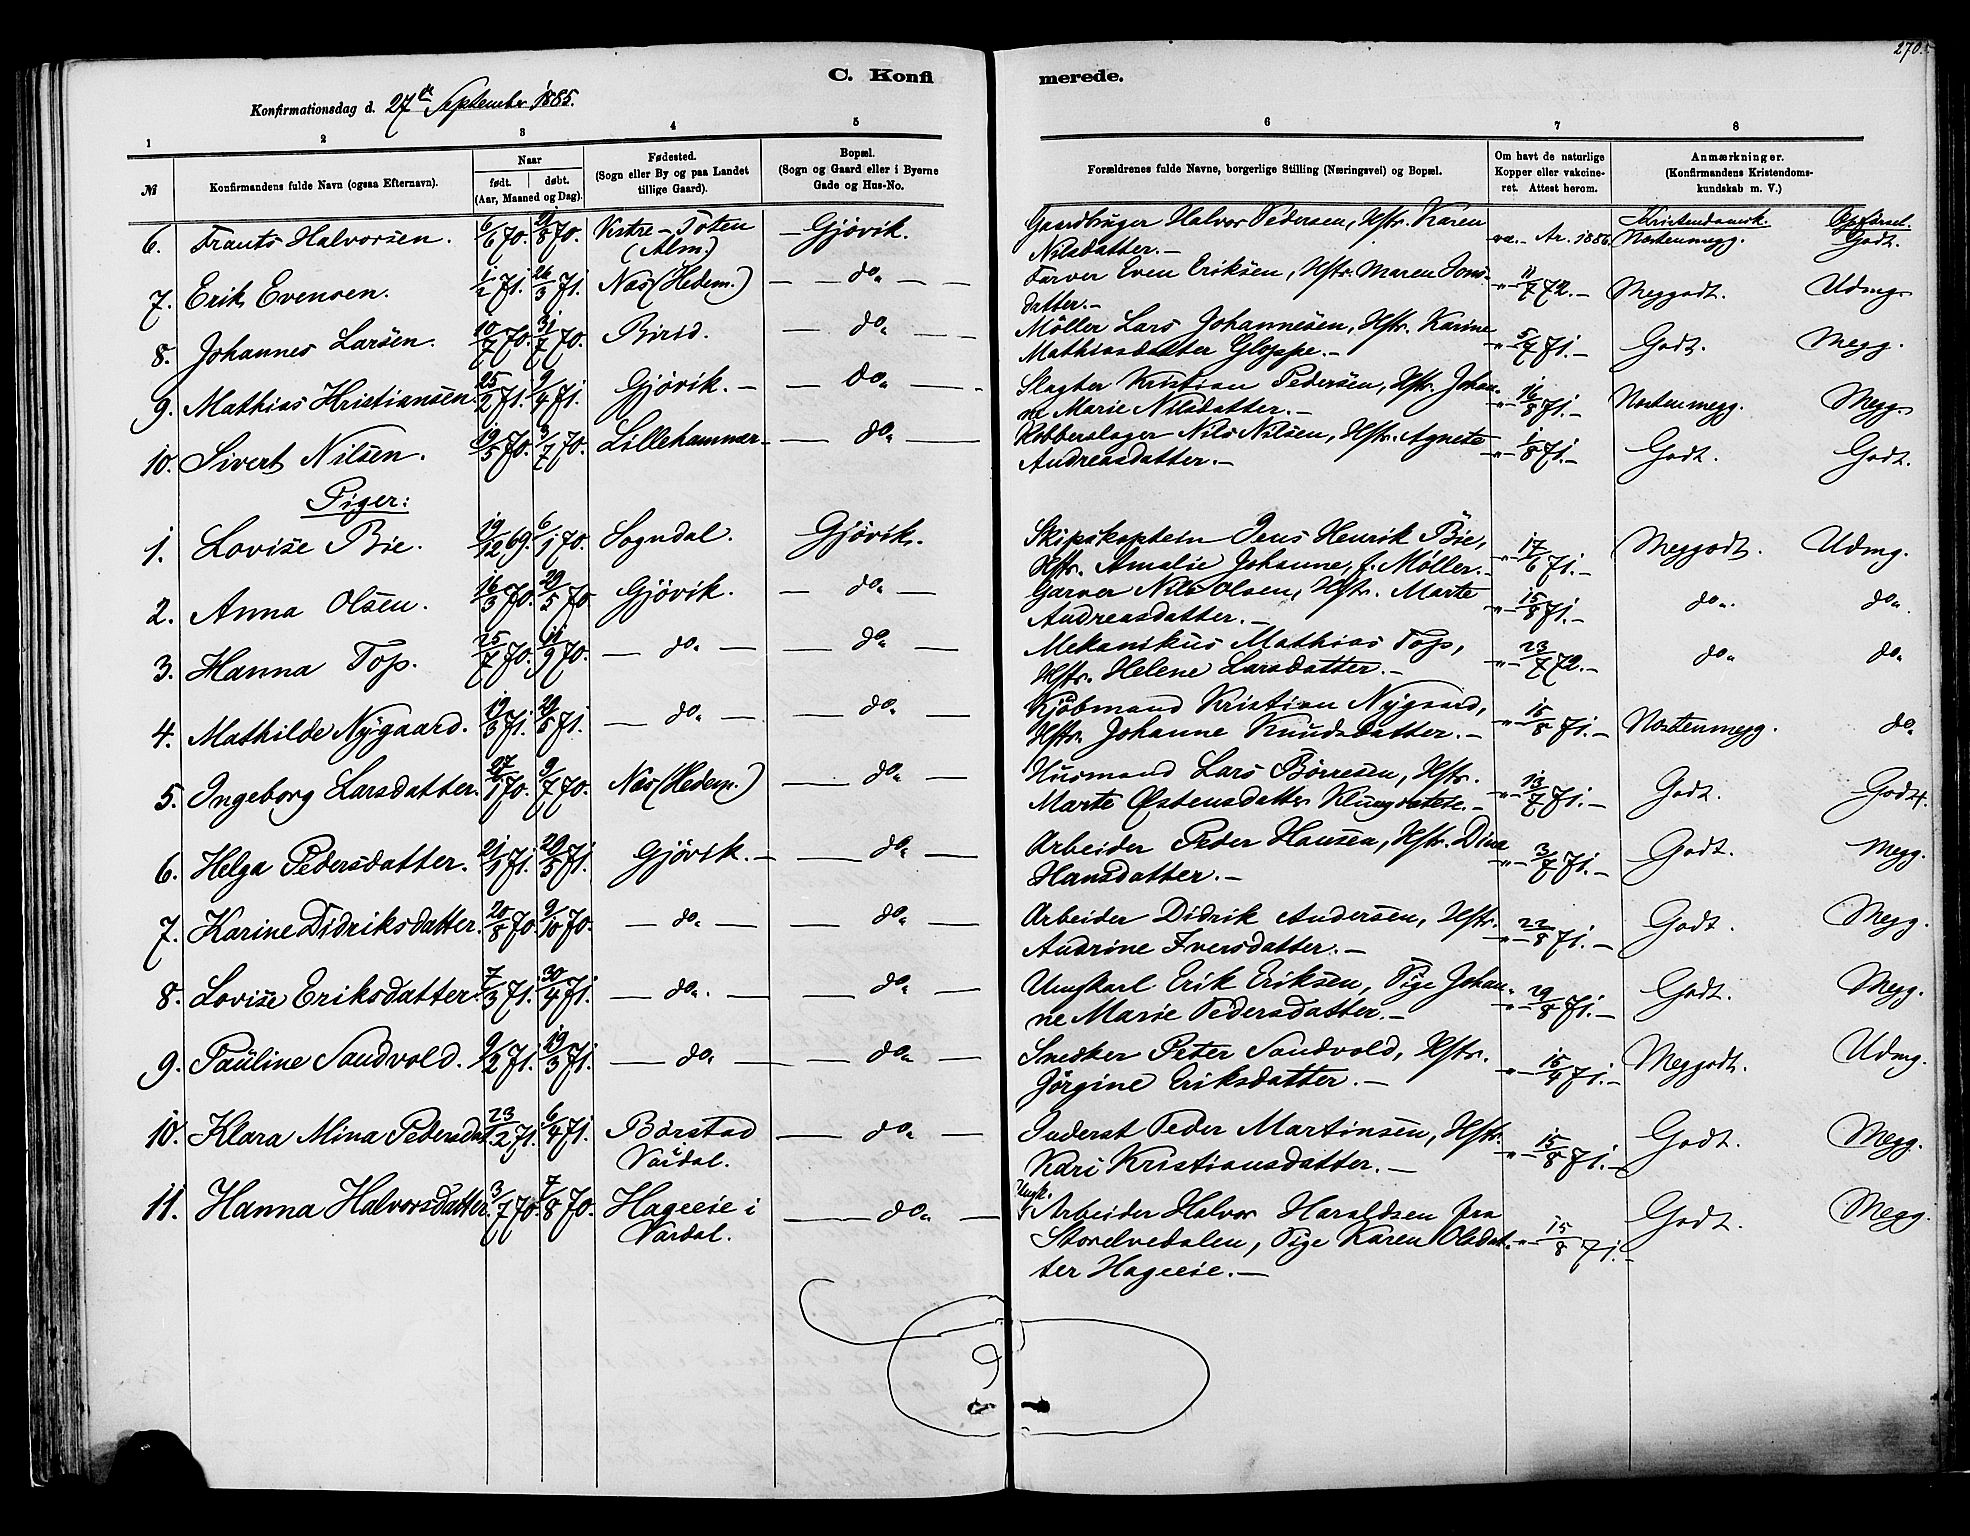 270.
C. Konfi
merede.
Konfirmationsdag d. 27de September 1885.
1 2 3 4 5 6 7 8
№
Konfirmandens fulde Navn (ogsaa Efternavn).
Naar
født. døbt.
(Aar, Maaned og Dag).
Fødested.
(Sogn eller By og paa Landet
tillige Gaard).
Bopæl.
(Sogn og Gaard eller i Byerne
Gade og Hus-No.
Forældrenes fulde Navne, borgerlige Stilling (Næringsvei) og Bopæl.
Om havt de naturlige
Kopper eller vakcine-
ret. Attest herom.
Anmærkninger.
(Konfirmandens Kristendoms-
kundskab m. V.)
Kristendomsk. Opførsel.
6. Frants Halvorsen. 6/6 70. 21/8 70. Vestre-Toten — Gjøvik. Gaardbruger Halvor Pedersen, Hstr. Karen 1886. Næstenmegg. Godt.
(Alm.) Nilsdatter.—
7. Erik Evensen. 1/2 71. 26/3 71. Næs (Hedem.) — do. — Farver Even Eriksen, Hstr. Maren Jons- „— 11/7 72.— Meggodt. Udmg.
datter.—
8. Johannes Larsen. 10/7 70. 31/7 70. Birid. — do. — Møller Lars Johannesen, Hstr. Karine „— 5/7 71.— Godt. Megg.
Mathiasdatter Gloppe.—
9. Mathias Kristiansen. 25/2 71. 9/4 71. Gjøvik. — do. — Slagter Kristian Pedersen, Hstr. Johan- „— 16/8 71.— Næstenmegg. Megg.
ne Marie Nilsdatter.—
10. Sivert Nilsen. 19/5 70. 3/7 70. Lillehammer — do. — Kobberslager Nils Nilsen, Hstr. Agnete „— 1/8 71.— Godt. Godt.
Andreasdatter.—
Piger:
1. Lovise Bie. 19/12 69. 6/1 70. Sogndal. Gjøvik. Skipskaptein Jens Henrik Bie, „— 17/6 71.— Meggodt. Udmg.
Hstr. Amalie Johanne, f. Møller.—
2. Anna Olsen. 16/3 70. 29/5 70 Gjøvik. — do. — Garver Nils Olsen, Hstr. Marte „— 15/8 71.— do. do.
Andreasdatter.—
3. Hanna Top. 25/7 70. 11/9 70. — do. — — do. — Mekanikus Mathias Top, „— 23/7 72.— do. do.
Hstr. Helene Larsdatter.—
4. Mathilde Nygaard. 19/3 71. 29/5 71. — do. — — do. — Kjøbmand Kristian Nygaard, „— 15/8 71.— Næstenmegg. do.
Hstr. Johanne Knudsdatter.—
5. Ingeborg Larsdatter. 27/1 70. 9/7 70. Næs (Hedem.) — do. — Husmand Lars Børresen, Hstr. „— 13/7 71.— Godt. Godt.
Marte Østensdatter
6. Helga Pedersdatter. 21/3 71. 29/5 71. Gjøvik. — do. — Arbeider Peder Hansen, Hstr. Dina „— 3/7 71.— Godt. Megg.
Hansdatter.—
7. Karine Didriksdatter. 20/8 70. 9/10 70. — do. — — do. — Arbeider Didrik Andersen, Hstr. „— 22/8 71.— Godt. Megg.
Andrine Iversdatter.—
8. Lovise Eriksdatter. 7/3 71. 30/4 71. — do. — — do. — Ungkarl Erik Eriksen, Pige Johan- „— 29/8 71.— Godt. Megg.
ne Marie Pedersdatter.—
9. Pauline Sandvold. 9/2 71. 19/3 71. — do. — — do. — Snedker Peter Sandvold, Hstr. „— 15/4 71.— Meggodt. Udmg.
Jørgine Eriksdatter.—
10. Klara Mina Pedersdat. 23/2 71. 6/4 71. Børstad — do. — Inderst Peder Martinsen, Hstr. „— 15/8 71.— Godt. Megg.
Vardal. Kari Kristiansdatter.—
11. Hanna Halvorsdatter. 3/7 70. 7/8 70. Hageeie i — do. — Ungk. Arbeider Halvor Haraldsen fra „— 15/8 71.— Godt. Megg.
Vardal. Storelvedalen, Pige Karen Olsdat-
ter Hageeie.—